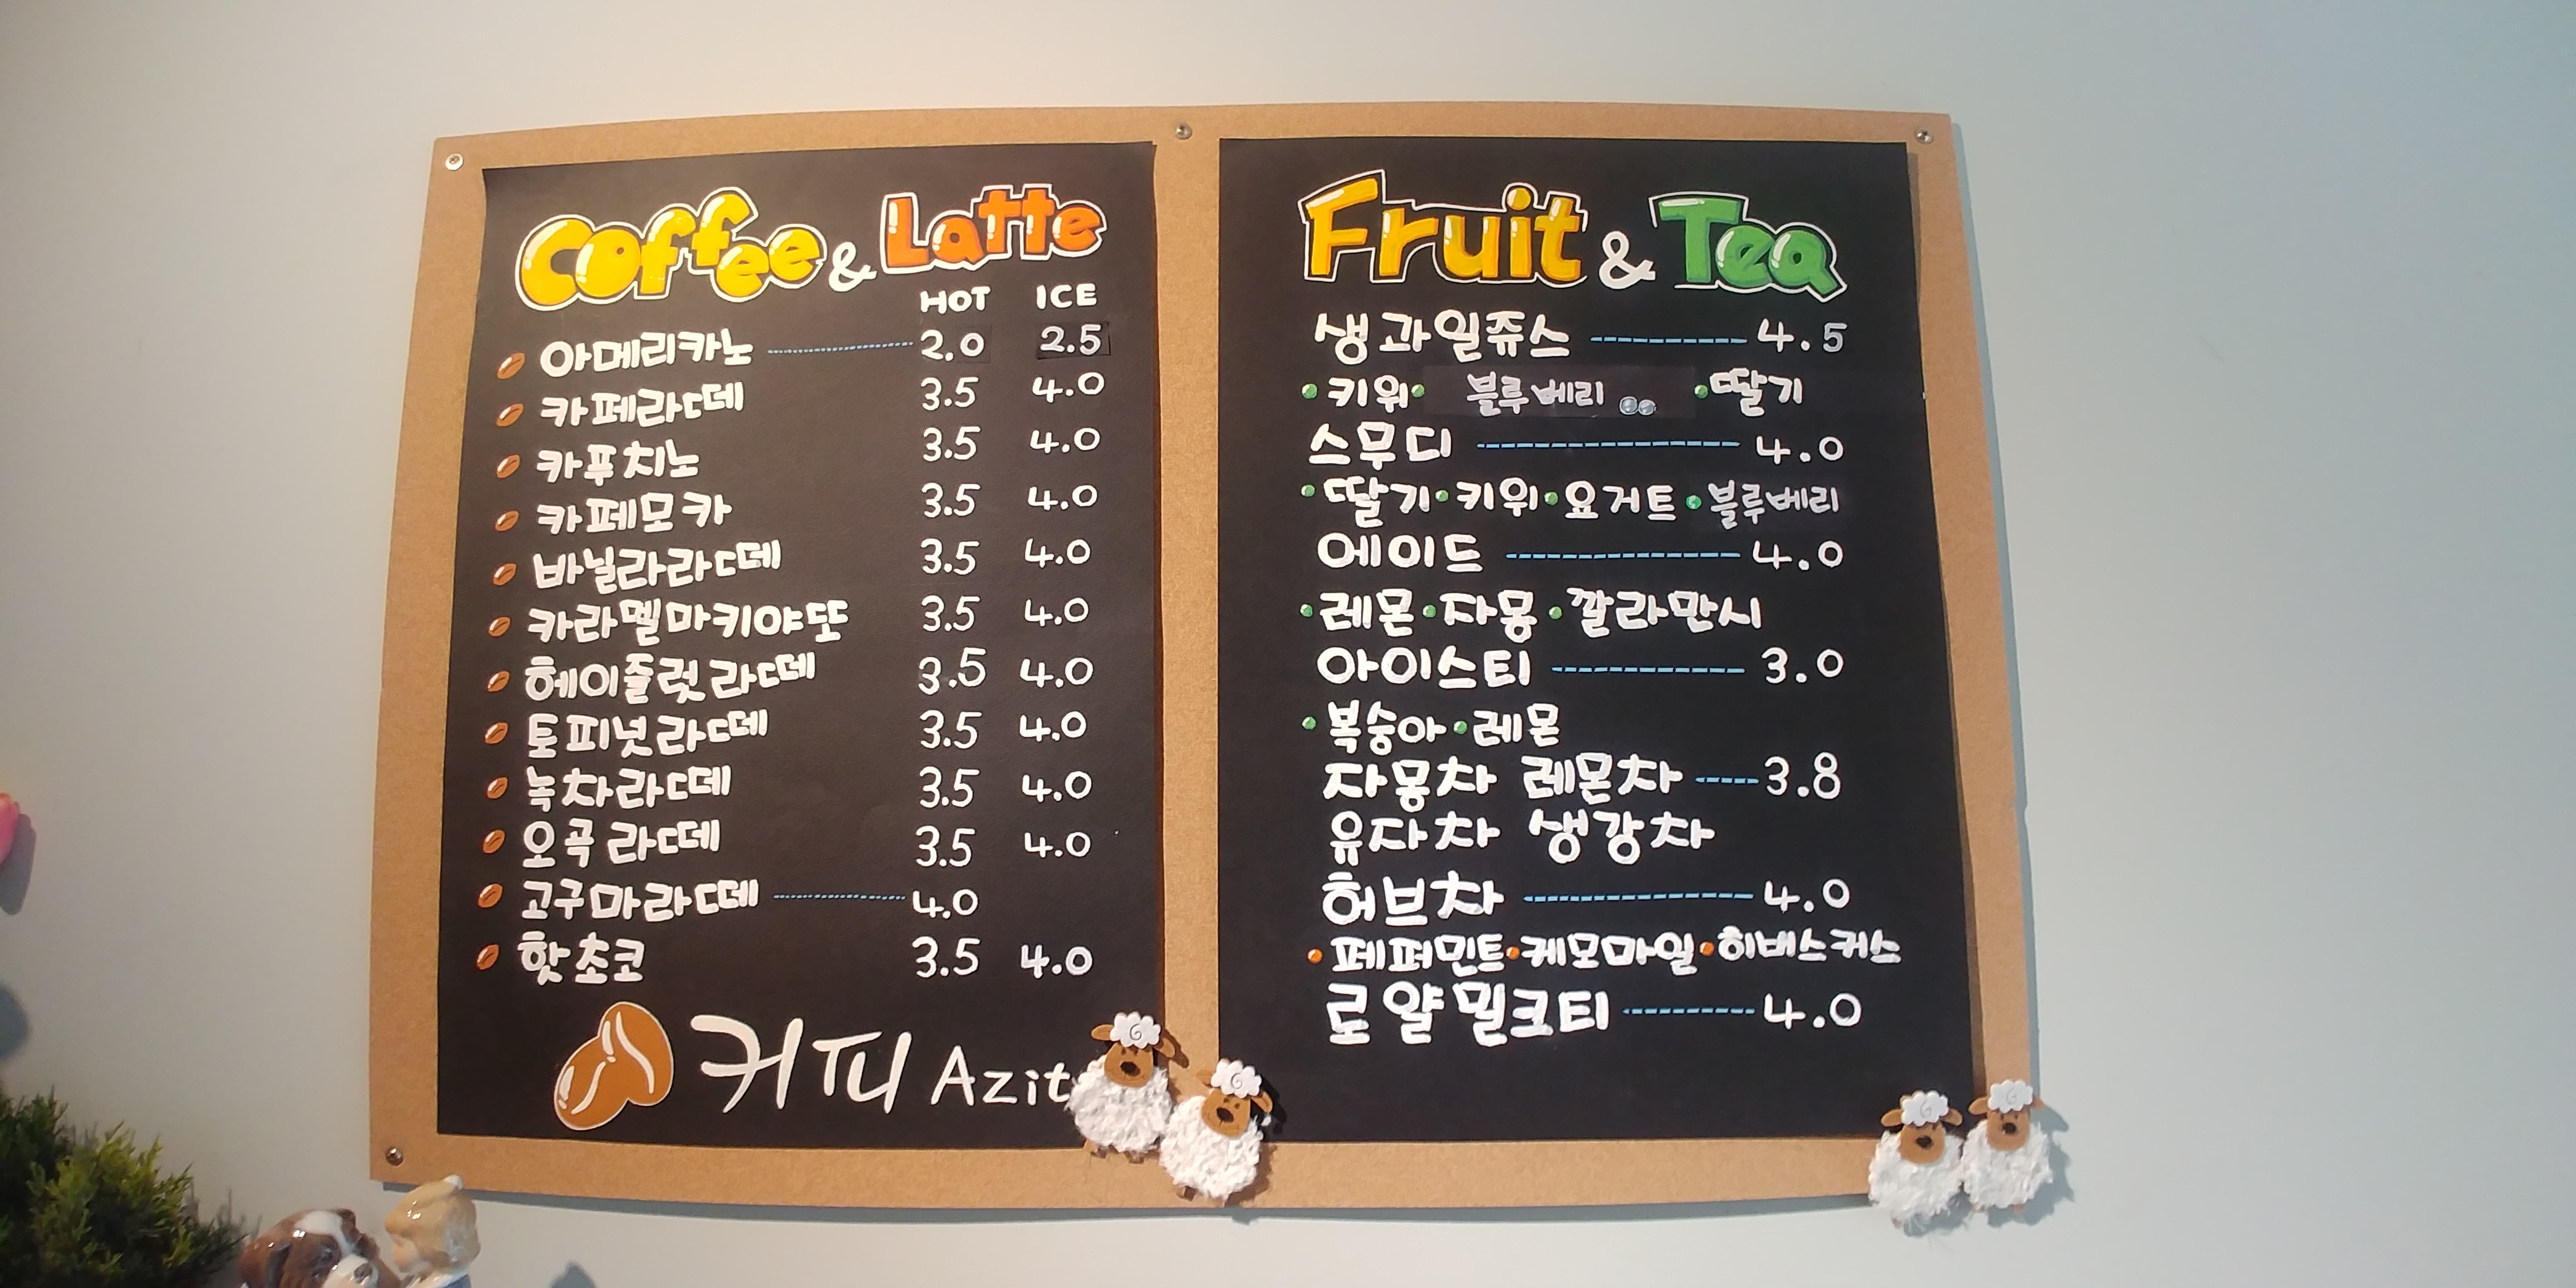 Coffee & Latte
HOT ICE
아메리카노 2.0 2.5
카페라떼 3.5 4.0
카푸치노 3.5 4.0
카페모카 3.5 4.0
바닐라라떼 3.5 4.0
카라멜마키야또 3.5 4.0
헤이즐럿라떼 3.5 4.0
토피넛라떼 3.5 4.0
녹차라떼 3.5 4.0
오곡라떼 3.5 4.0
고구마라떼 4.0
핫초코 3.5 4.0
커피 Azit
Fruit & Tea
생과일쥬스 4.5
•키위• 블루베리 •딸기
스무디 4.0
•딸기•키위•요거트•블루베리
에이드 4.0
•레몬•자몽•깔라만시
아이스티 3.0
•복숭아•레몬
자몽차 레몬차 3.8
유자차 생강차
허브차 4.0
•페퍼민트•케모마일•히비스커스
로얄밀크티 4.0